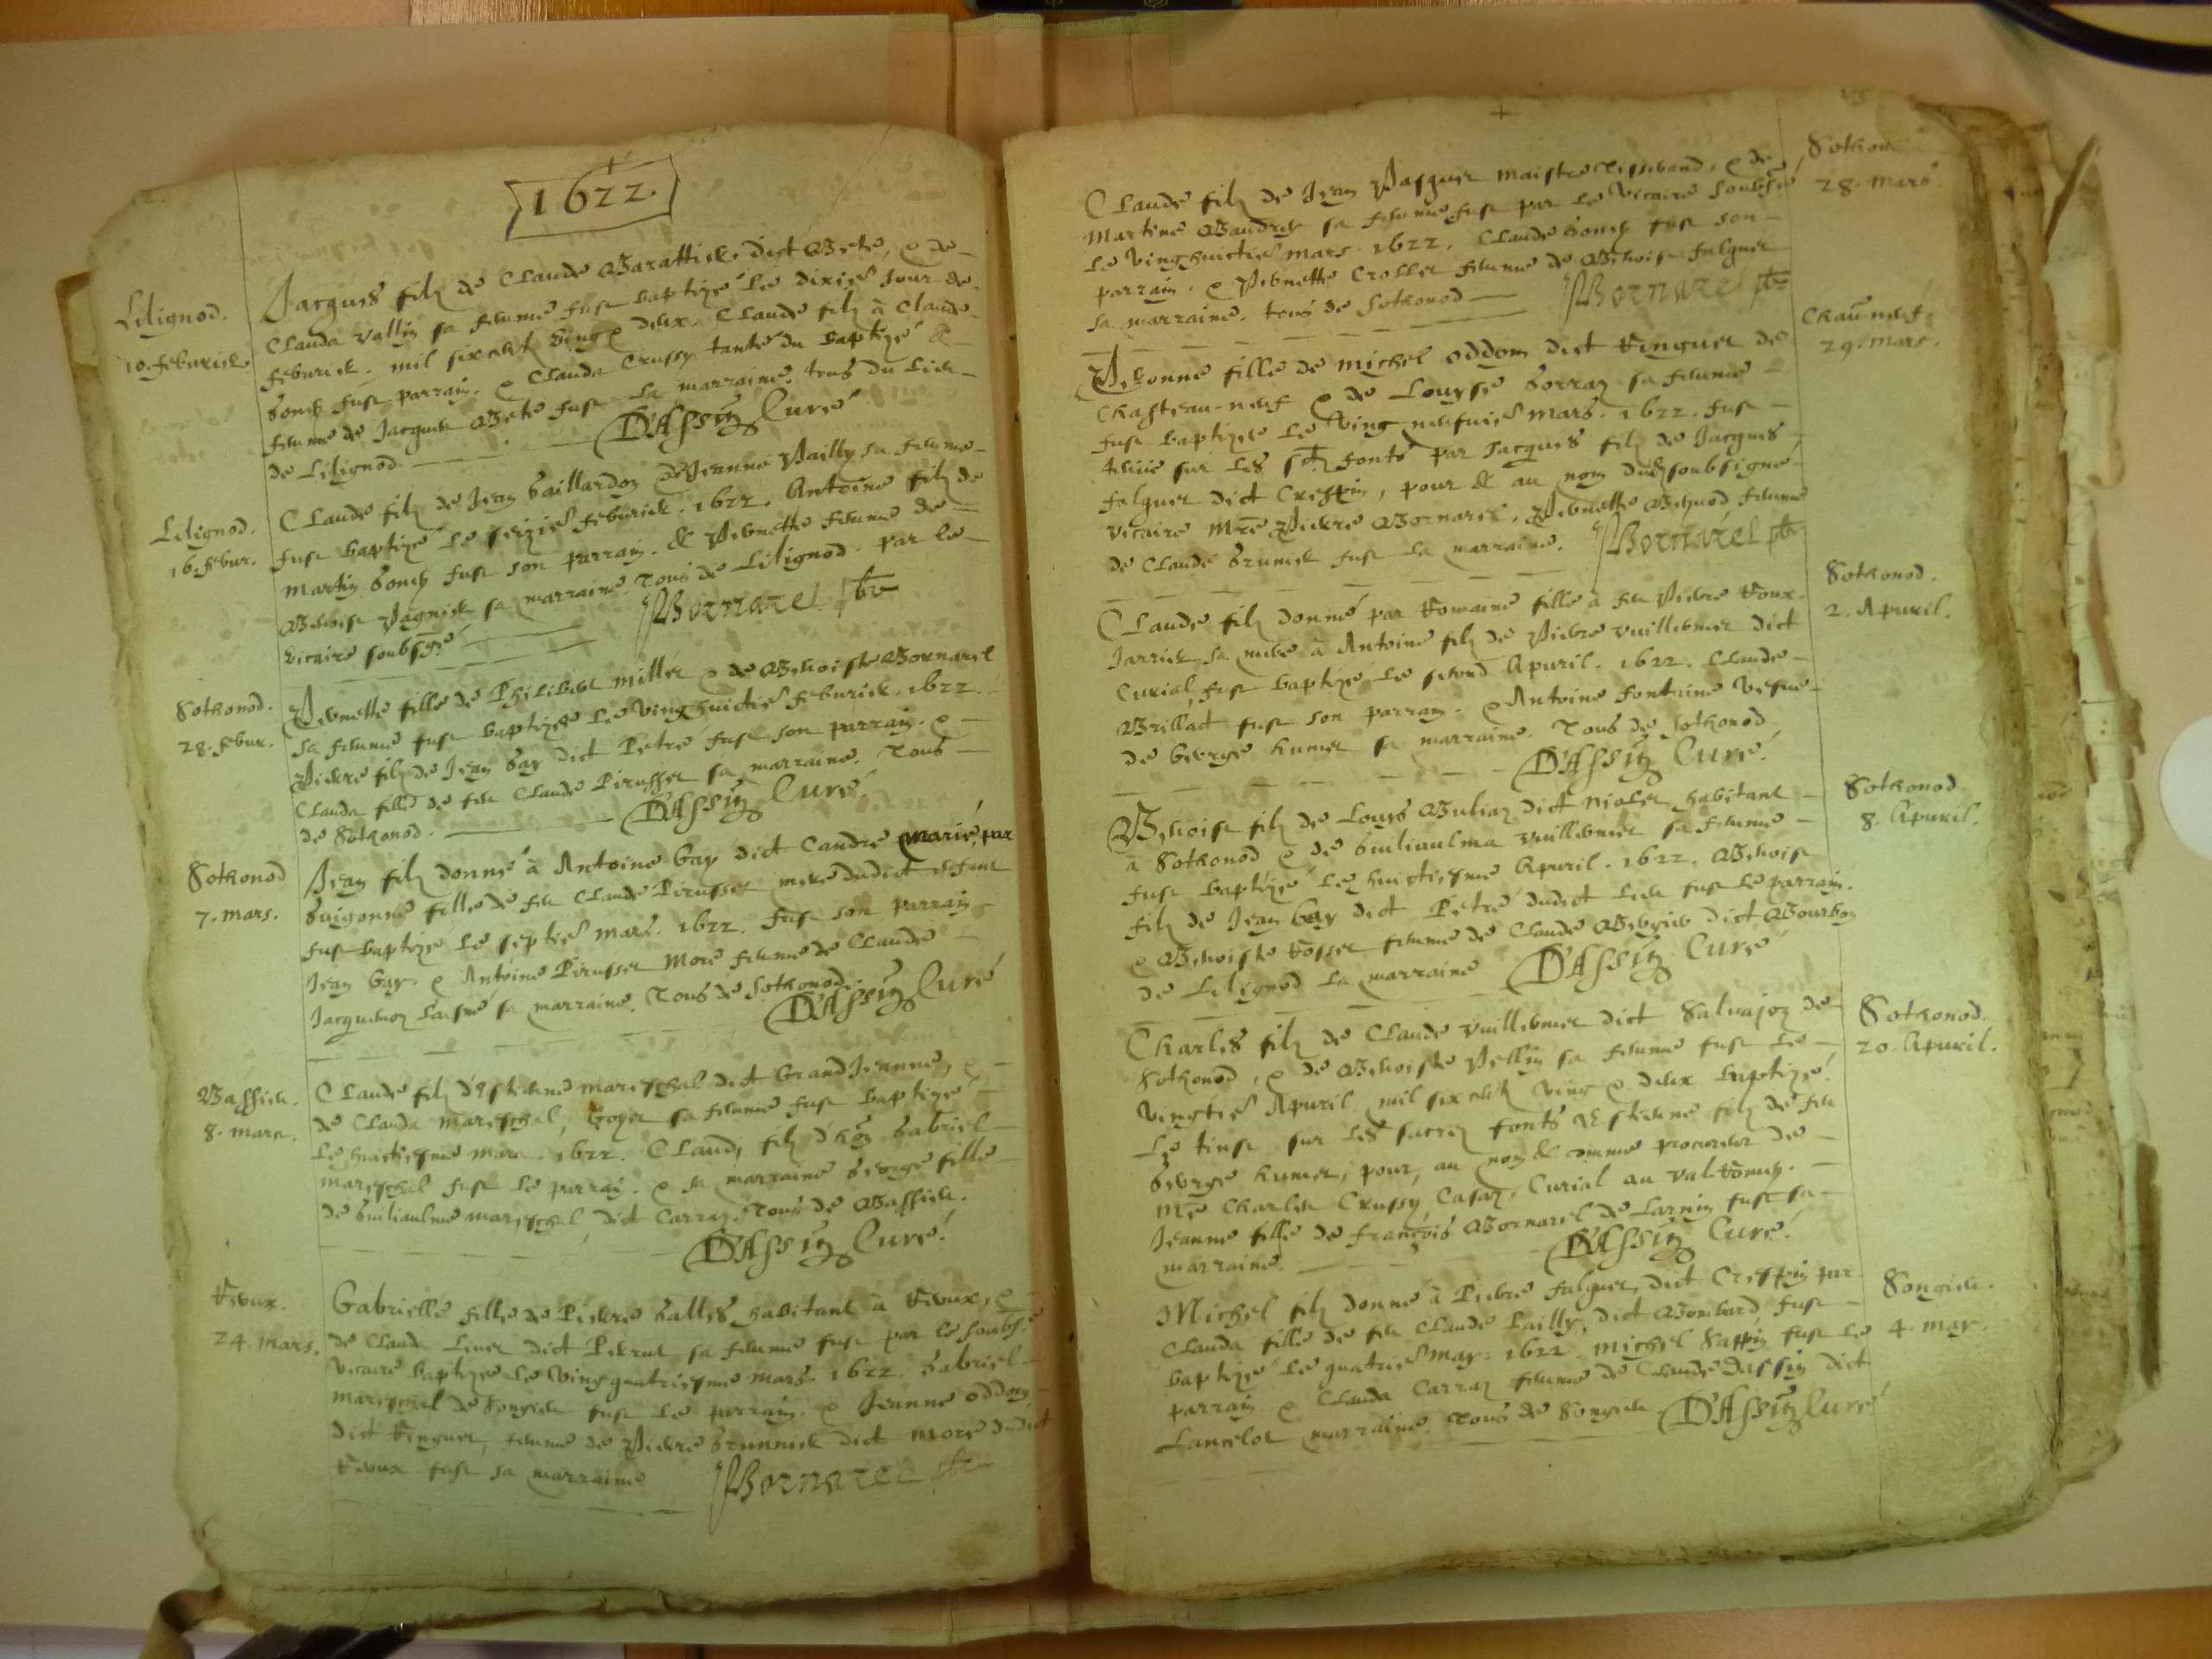 1622.
Lilignod.
10. feburier.
Jacques filz de Claude Barattier dict Bete, & de
Clauda Vallin sa femme fust baptizé le dixie Jour de
feburier mil six cent vingt & deux. Claude filz à Claude
fust parrain. & Clauda Crussy tante du baptizé &
femme de Jacques Bete fust la marraine. tous du lieu
de Lilignod. DAssin Curé
Lilignod.
16. febur.
Claude filz de Jean Gaillardon & de Jeanne Pailly sa femme
fust baptizé le seizie feburier. 1622. Antoine filz de
Martin fust son parrain. & Pernette femme de
Benoist Pagnier sa marraine. Tous de Lilignod. par le
vicaire soubsé Bornarel pbre
Sothonod.
28. febur.
Pernette fille de Philibert millet & de Benoiste Bornarel
sa femme fust baptizée le vinghuictie feburier. 1622.
Pierre filz de Jean Gay dict Petre fust son parrain. &
Clauda fille de feu Claude Pirusset sa marraine. Tous
de Sothonod. DAssin Curé
Sothonod
7. mars.
Jean filz donné à Antoine Gay dict Candre marié, par
Guigonne fille de feu Claude Pirusset mere dudict enfant
fust baptizé le septie mars. 1622. fust son parrain
Jean Gay. & Antoine Pirusset More femme de Claude
Jacquemoz laisné sa marraine. Tous de Sothonod. DAssin Curé
Bassieu.
8. mars.
Claude filz d'Estienne mareschal dict Grand Jeanne, &
de Clauda mareschal, Goyet sa femme fust baptizé
le huictiesme mars. 1622. Claude filz d'hon Gabriel
mareschal fust le parrain. & sa marraine George fille
de Guiliaulme mareschal dict Carraz. Tous de Bassieu.
DAssin Curé
Reoux.
24. mars.
Gabrielle fille de Pierre Galles habitant à Reoux, &
de Clauda Livet dict Perrut sa femme fust par le soubsé
vicaire baptizée le vingquatriesme mars 1622. Gabriel
mareschal de Songieu fust le parrain. & Jeanne oddon
dict Ringuet, femme de Pierre Brunnier dict more dudict
Reoux fust sa marraine Bornarel pbre
Sothonod
28. mars.
Claude filz de Jean Pasquet maistre tisserand, & de
Martine Baudrey sa femme fust par le vicaire soubsé
le vinghuictie mars 1622. Claude fust son
parrain. & Pernette Crollet femme de Benoist falquet
sa marraine. tous de Sothonod Bornarel pbre
Chauneuf
29. mars.
Peronne fille de michel oddon dict Ringuet de
Chasteau-neuf & de Louyse sa femme
fust baptizée le vingneufuie mars. 1622. fust
tenue sur les fonts par Jacques filz de Jacques
falquet dict Crespin, pour & au nom dud soubsigné
vicaire Mre Pierre Bornarel, Pernette femme
de Claude Brunier fust la marraine. Bornarel pbre
Sothonod.
2. Apuril.
Claude filz donné par Romaine fille à feu Pierre Roux
Jarrier sa mere à Antoine filz de Pierre vuillermet dict
Curial fust baptizé le second Apuril. 1622. Claude
Brillat fust son parrain. & Antoine Fontaine vefue
de George humet sa marraine. Tous de Sothonod.
DAssin Curé
Sothonod
8. Apuril.
Benoist filz de Louys Bulian dict niolet habitant
à Sothonod & de Guiliaulma vuillermet sa femme
fust baptizé le huictiesme Apuril. 1622. Benoist
filz de Jean Gay dict Petre dudict lieu fust le parrain.
& Benoiste Rosset femme de Claude dict Bourbon
de Lilignod la marraine DAssin Curé
Sothonod.
20. Apuril.
Charles filz de Claude vuillermet dict Salvajoz de
Sothonod, & de Benoiste Pellin sa femme fust le
vingtie Apuril mil six cent vingt & deux baptizé.
Le tinst sur les sacrez fonts Estienne filz de feu
George humet, pour, au nom & comme procureur de
Me Charles Crussy, Casaz, Curial au Valromey.
Jeanne fille de François Bornarel de Larnin fust sa
marraine. DAssin Curé
Songieu.
4. may.
Michel filz donné à Pierre falquet, dict Crespin par
Clauda fille de feu Claude Pailly, dict Bombard fust
baptizé le quatrie may. 1622. michel Sappin fust le
parrain & Clauda Carraz femme de Claude Dassin dict
Lancelot marraine. Tous de Songieu DAssin Curé